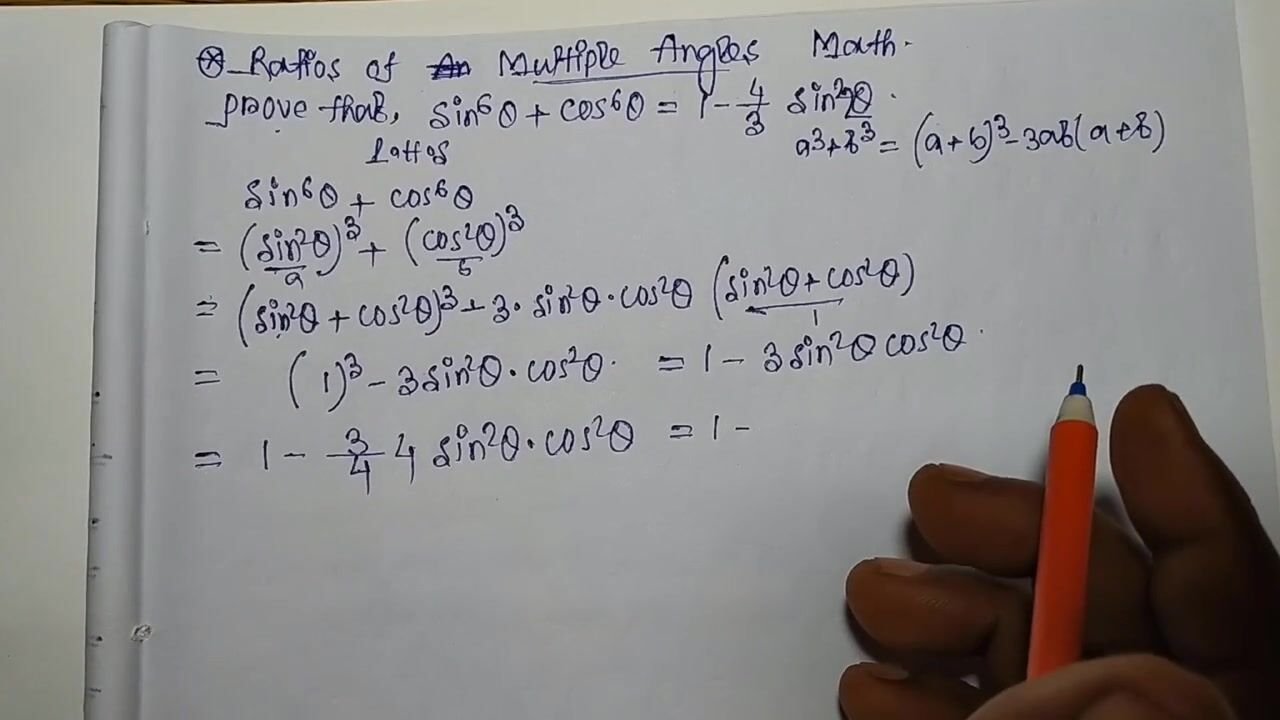 ⊛ Ratios of An Multiple Angles Math.
prove that, sin⁶θ + cos⁶θ = 1 - 4/3 sin²2θ.
a³+b³ = (a+b)³-3ab(a+b)
sin⁶θ + cos⁶θ
= (sin²θ)³ + (cos²θ)³
a b
= (sin²θ + cos²θ)³ - 3. sin²θ·cos²θ (sin²θ + cos²θ)
1
= (1)³ - 3sin²θ·cos²θ. = 1 - 3sin²θ cos²θ.
= 1 - 3/4 4 sin²θ·cos²θ = 1 -